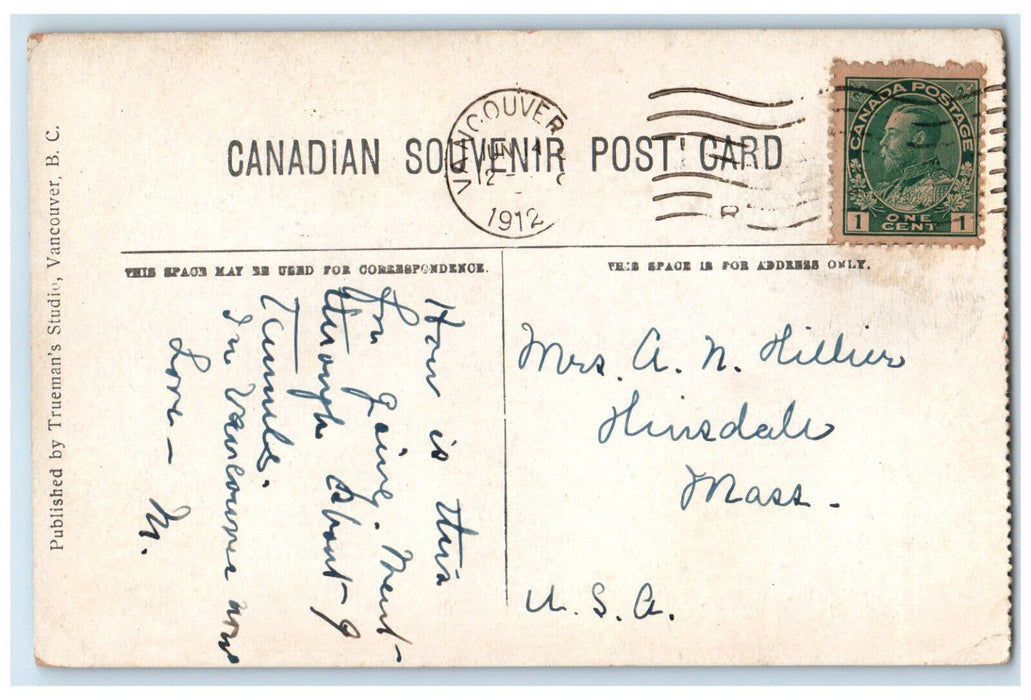 CANADIAN SOUVENIR POST CARD
VANCOUVER
1912
CANADA POSTAGE
1 ONE CENT 1
THIS SPACE MAY BE USED FOR CORRESPONDENCE.
THIS SPACE IS FOR ADDRESS ONLY.
How is this
for going. Went
through about 9
Tunnels.
In Vancouver now
Love - M.
Mrs. A. N. Hillier
Hinsdale
Mass.
U. S. A.
Published by Trueman's Studio, Vancouver, B. C.